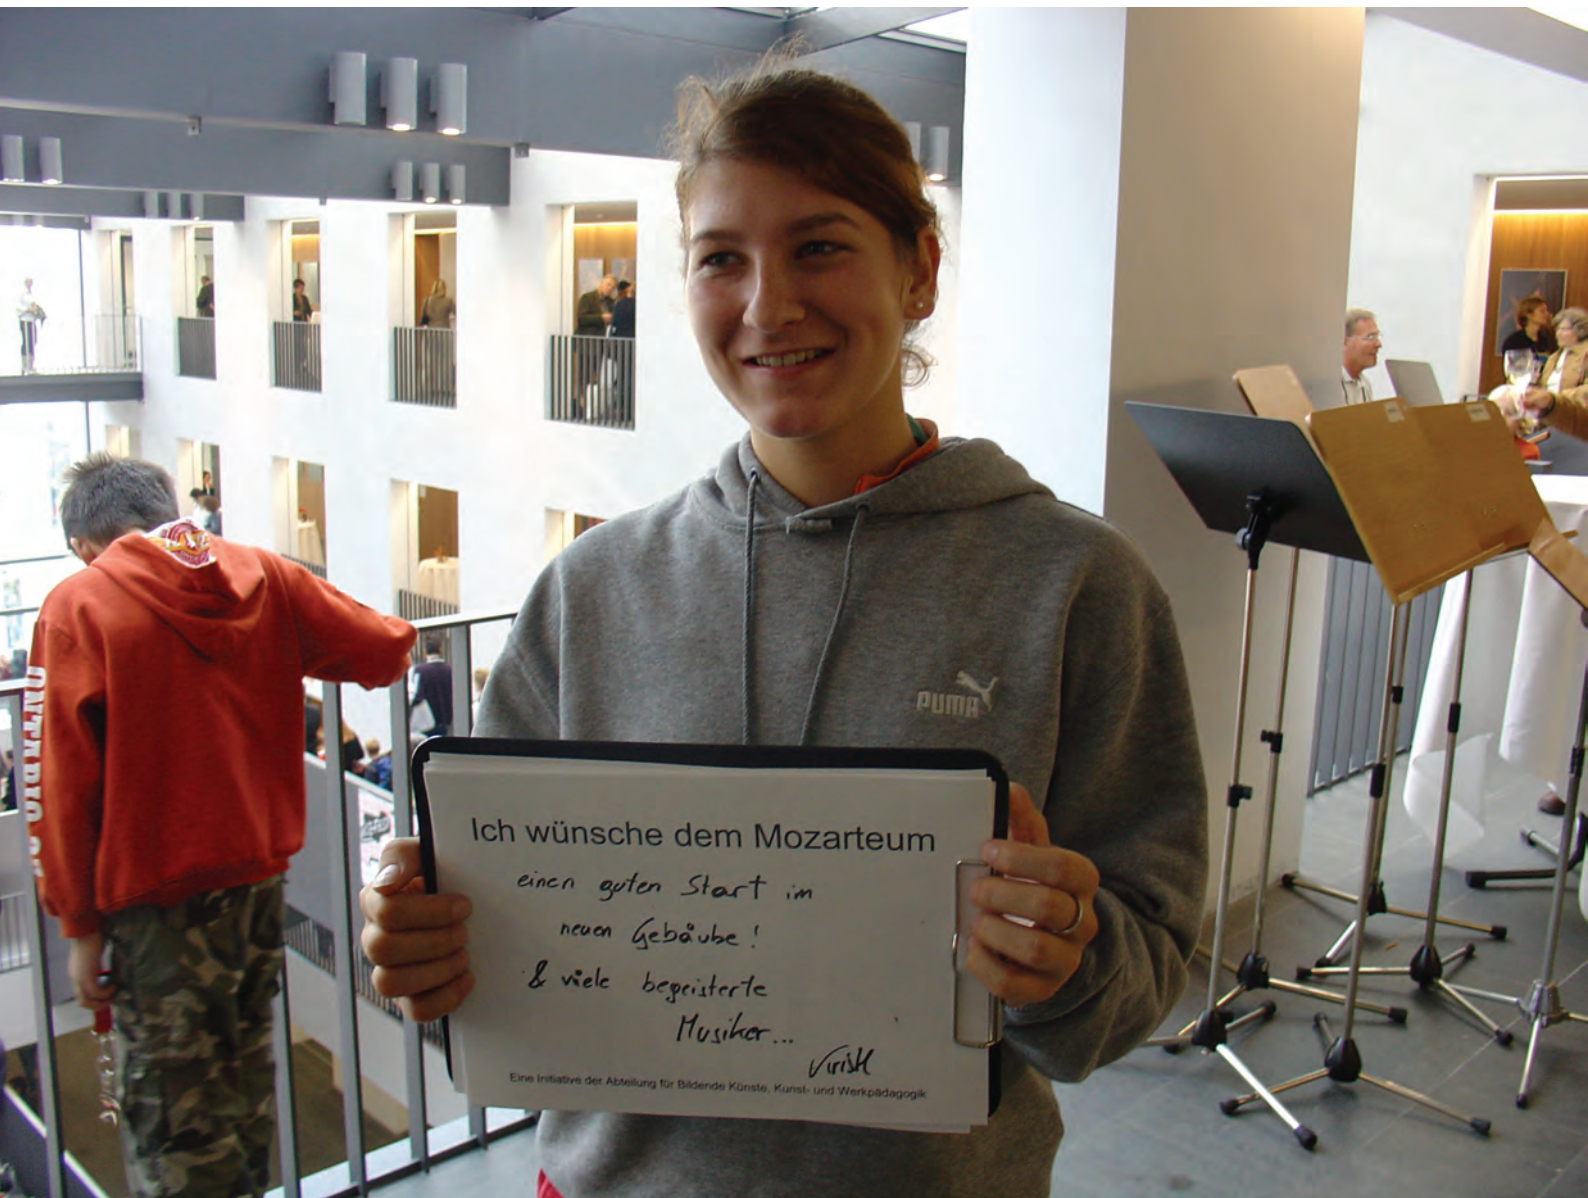 Ich wünsche dem Mozarteum
einen guten Start im
neuen Gebäude!
& viele begeisterte
Musiker...
Eine Initiative der Abteilung für Bildende Künste, Kunst- und Werkpädagogik
PUMA
ONTARIO